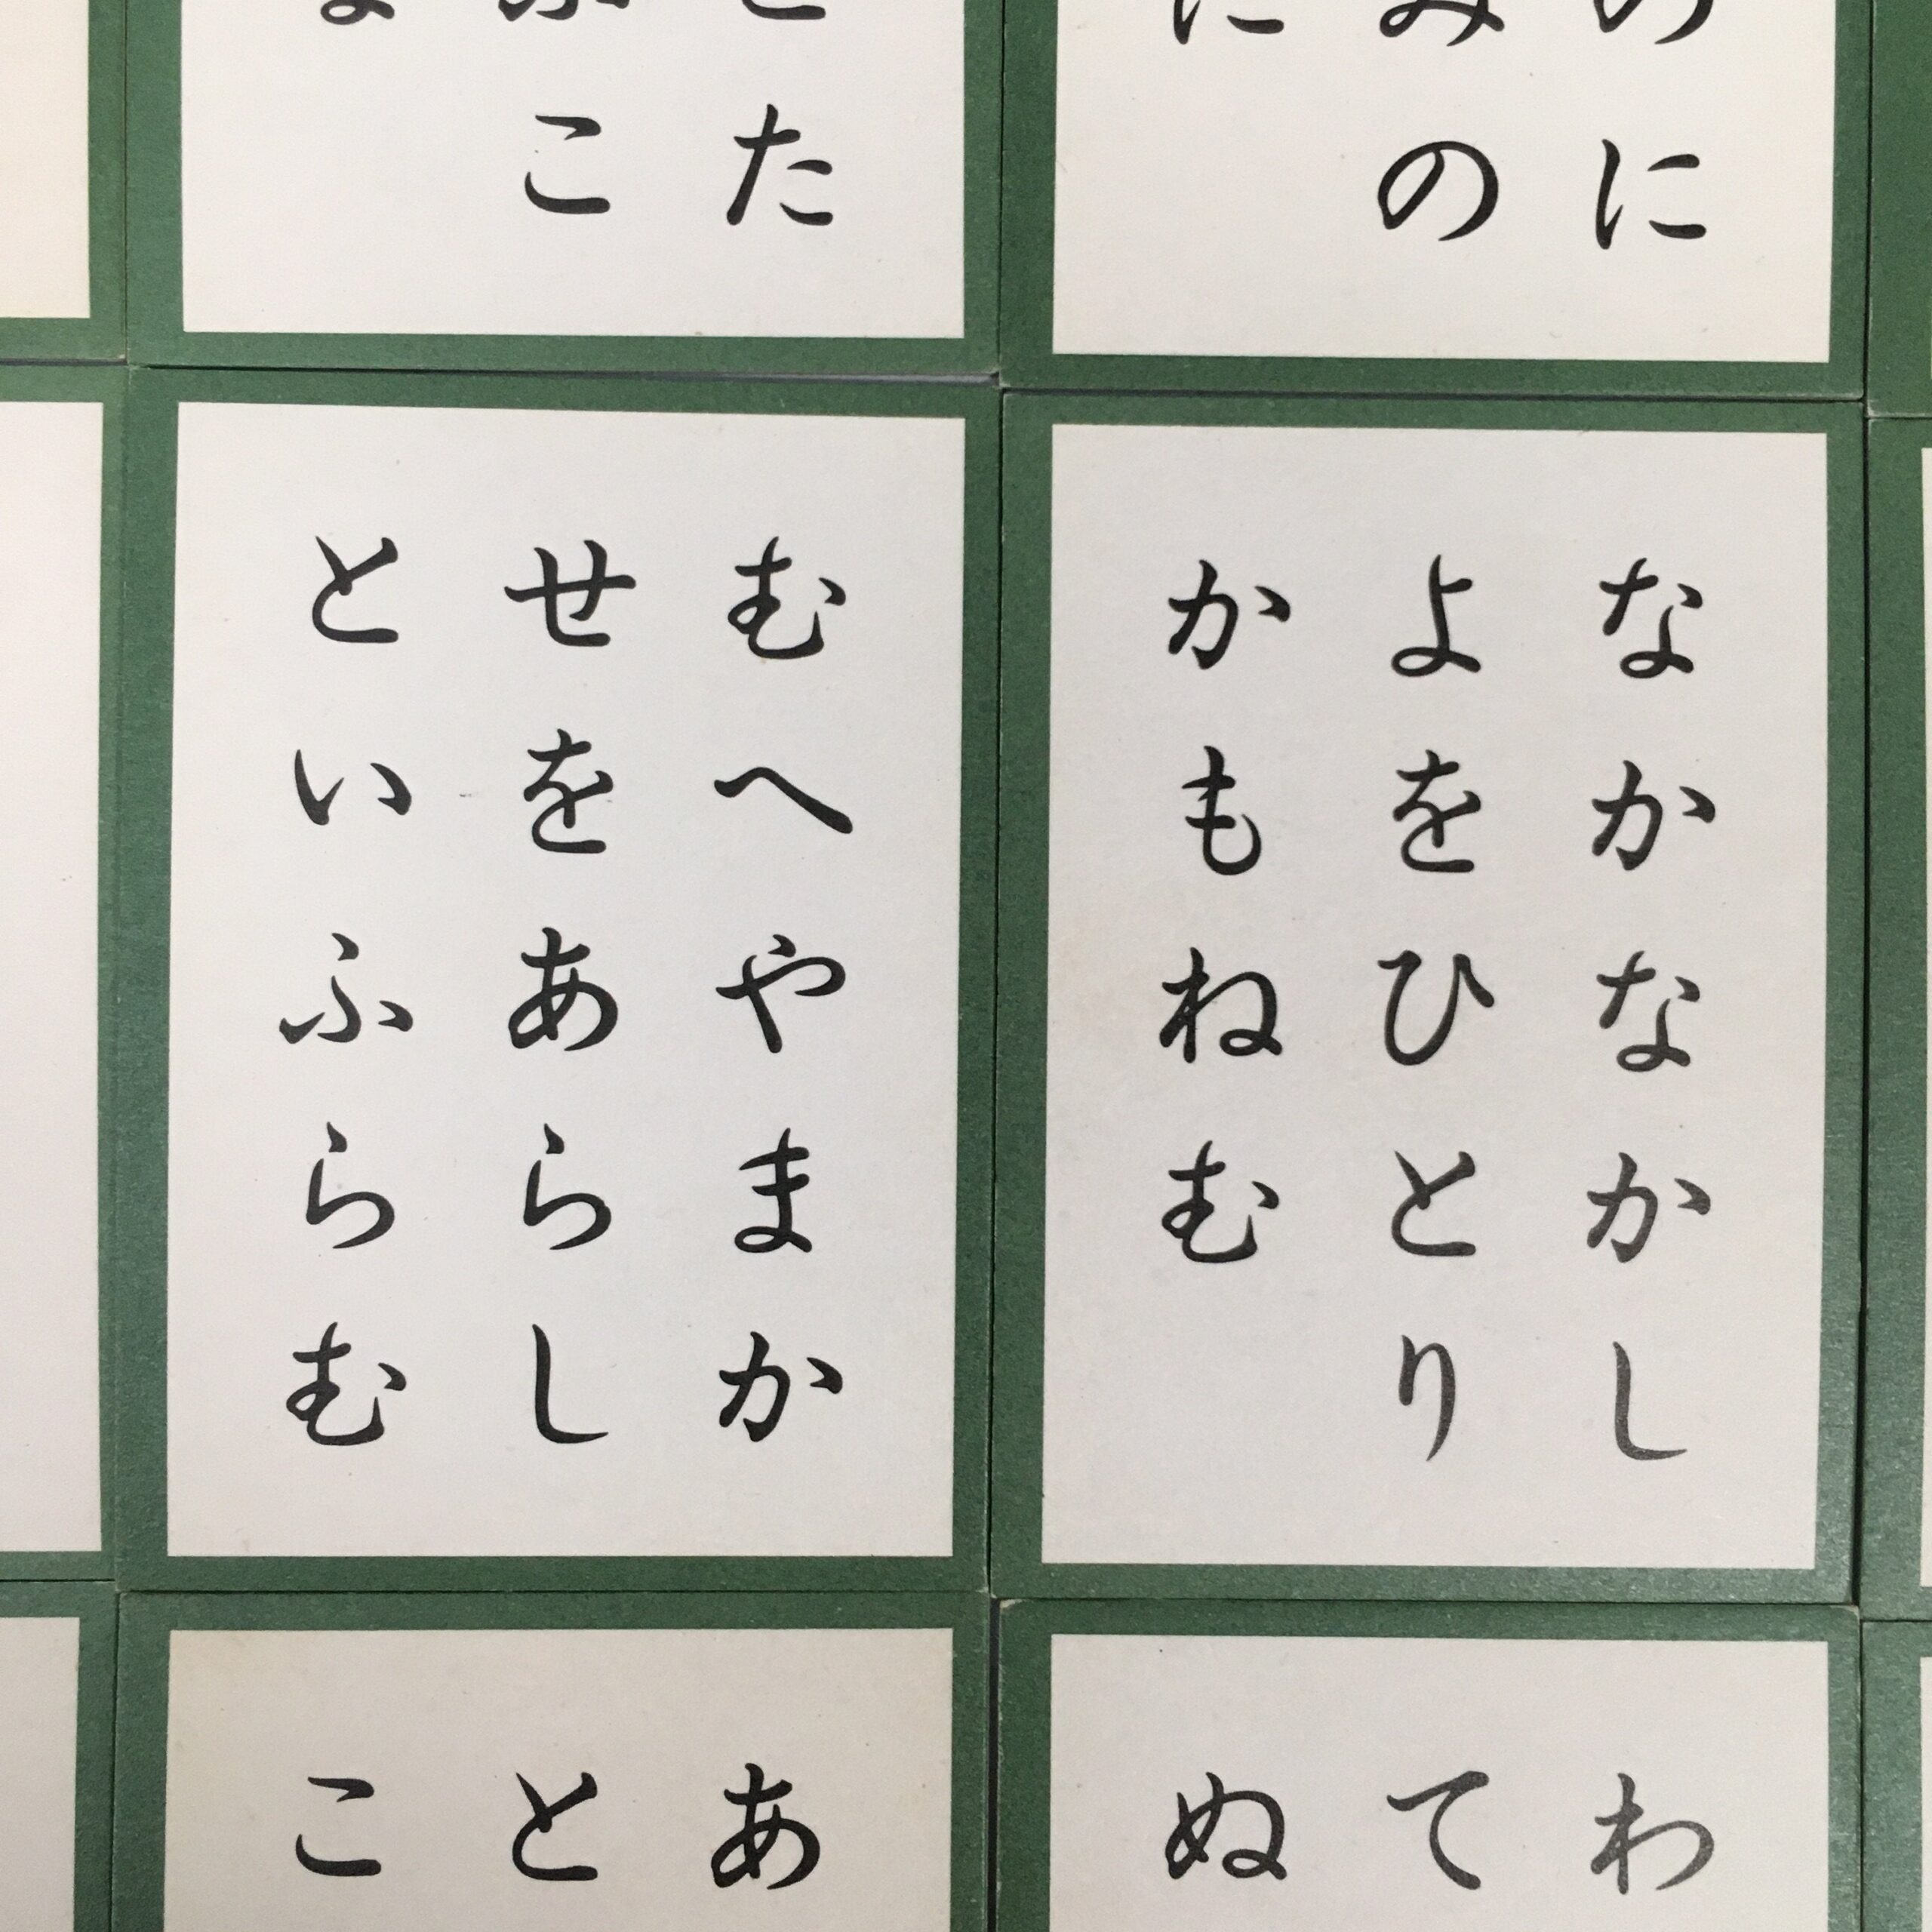 のに
みの
に
た
ふこ
なかなかし
よをひとり
かもねむ
むへやまか
せをあらし
といふらむ
わ
て
ぬ
あ
と
こ